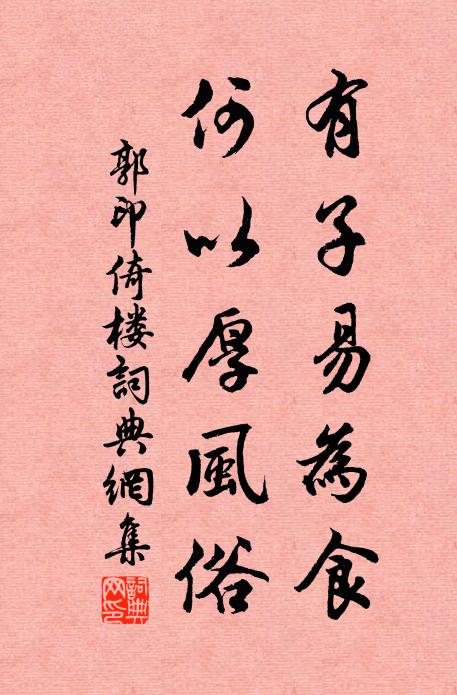 有子易為食
何以厚風俗
郭印倚楼詞典網集
詞典网印